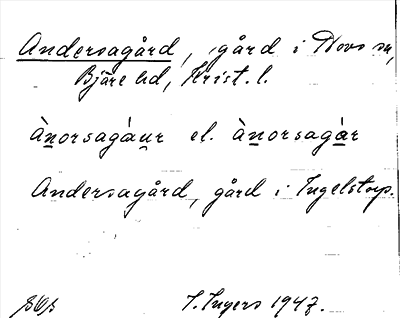 Andersagård, gård i Hovs sn,
Bjäre hd, Krist. l.
ànorsagàu̯r el. ànorsagàr
Andersagård, gård i Ingelstorp.
I. Ingers 1947.